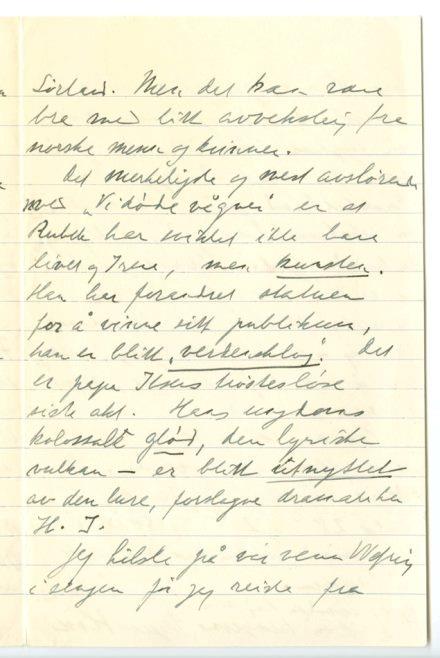 Sörland. Men det kan være
bra med litt avveksling fra
norske menn og kvinner.
Det merkeligste og mest avslørende
med „Vi döde vågner" er at
Rubek har sviktet ikke bare
livet og Irene, men kunsten.
Han har forandret statuen
for å vinne sitt publikum,
han er blitt „verdensklog". Det
er papa Ibsens tröstesløse
siste akt. Hans ungdoms
kolossale glød, den lyriske
vulkan – er blitt utnyttet
av den lure, forslagne dramatiker
H. I.
Jeg hilste på vår venn
i sengen för jeg reiste fra